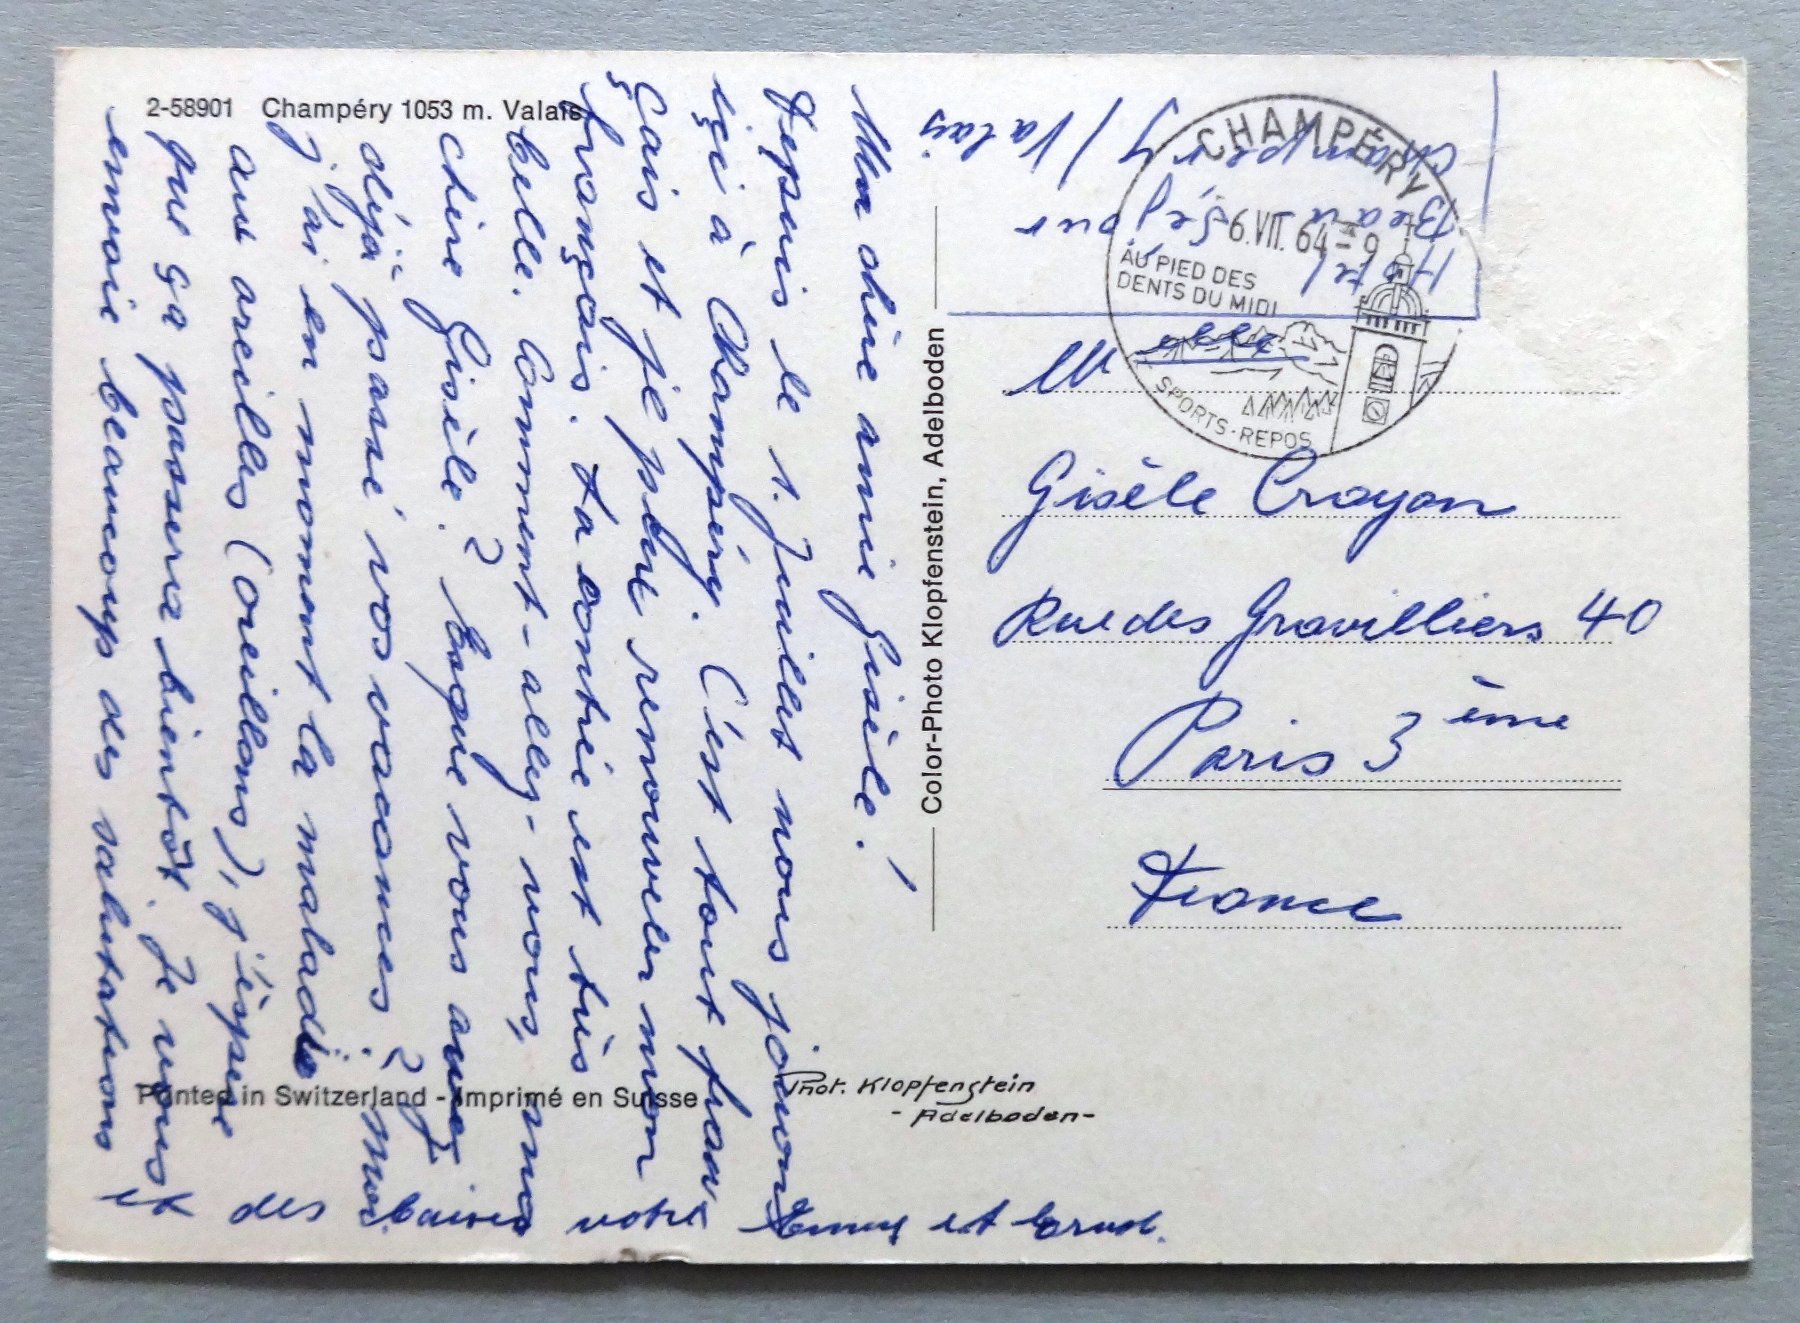 2-58901 Champéry 1053 m. Valais
Ma chère amie Gisèle!
Depuis le 1. Juillet nous
içi à Champéry. C'est tout fran-
çais et je peux renouveler mon
français. La contrée est très
belle. Comment-allez-vous, ma
chère Gisèle? Esque vous avez
déjà passé vos vacances? Moi
j'ai en moment la maladie
aux areilles (oreillons), j'éspère
que ça passera bientôt. Je vous
envoie beaucoup des salutations
et des baises votre Emmy et Ernst.
Color-Photo Klopfenstein, Adelboden
Printed in Switzerland - Imprimé en Suisse
Phot. Klopfenstein
- Adelboden -
Hotel
Beau Séjour
Champéry / Valais
CHAMPÉRY
6.VII.64-9
AU PIED DES
DENTS DU MIDI
SPORTS-REPOS
Melle
Gisèle Crayon
Rue des Gravilliers 40
Paris 3ème
France